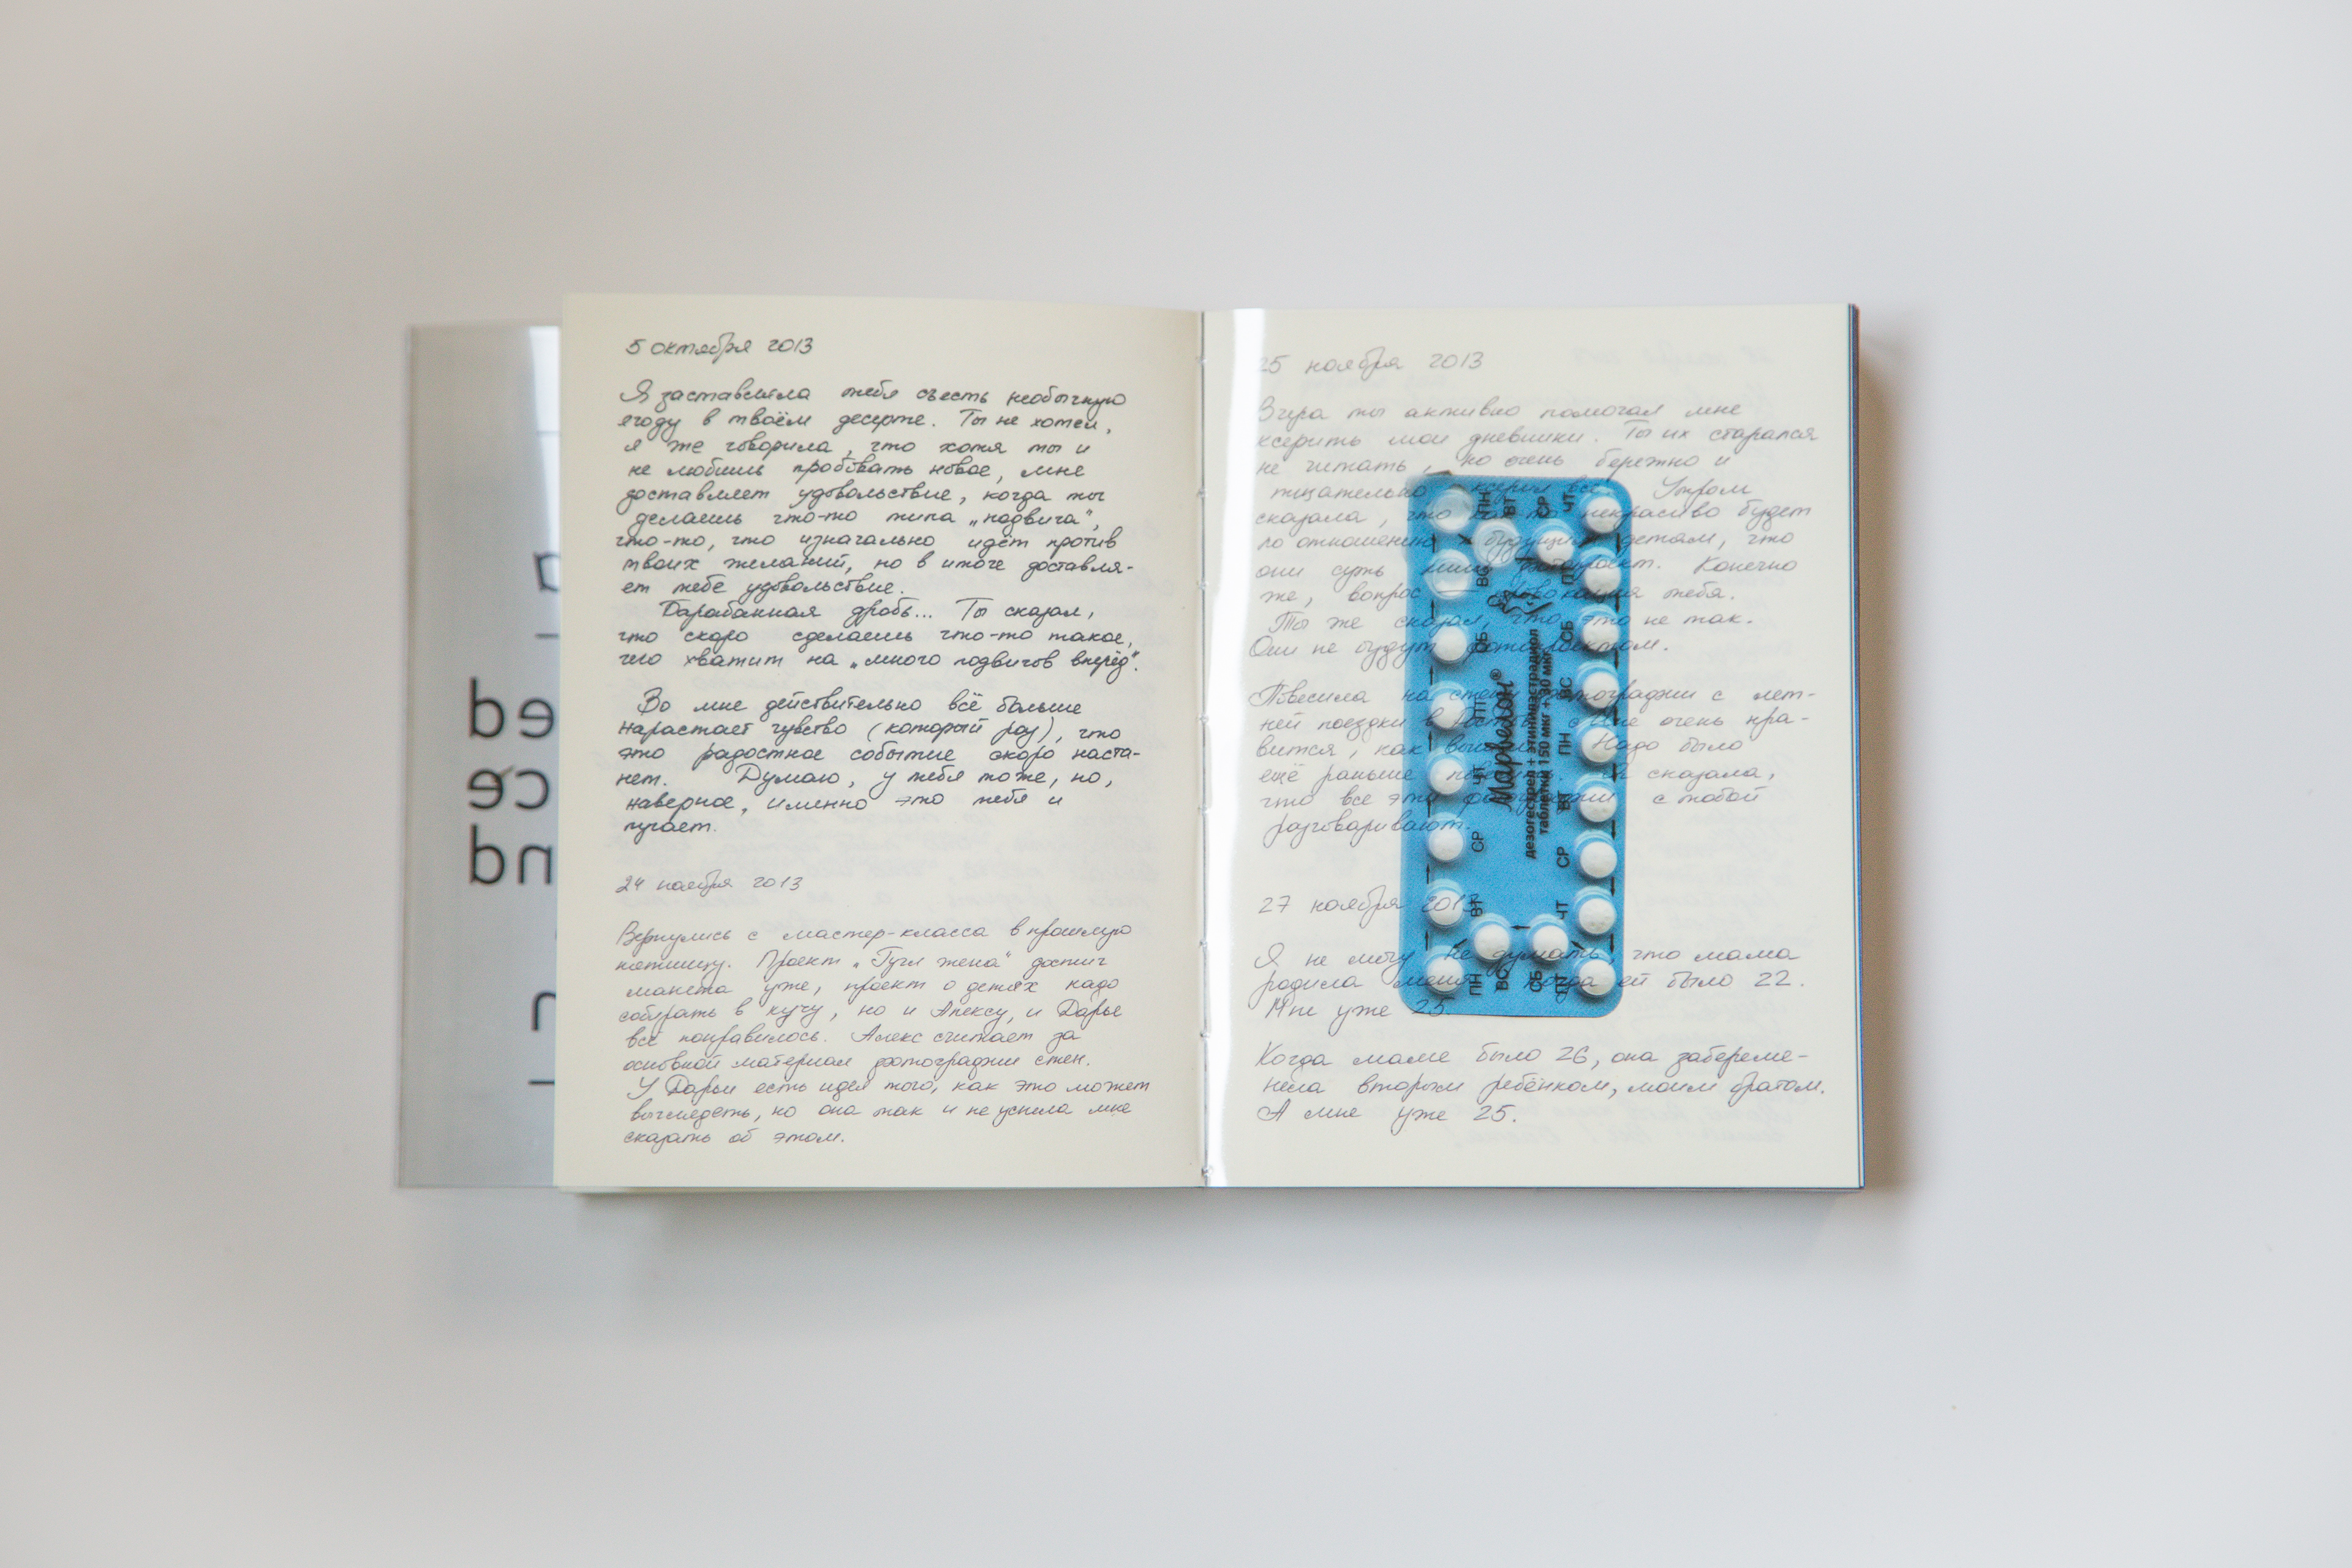 5 октября 2013
Я заставляла тебя съесть необычную
ягоду в твоём десерте. Ты не хотел,
я же говорила, что хотя ты и
не любишь пробовать новое, мне
доставляет удовольствие, когда ты
делаешь что-то типа „подвига“,
что-то, что изначально идёт против
твоих желаний, но в итоге доставля-
ет тебе удовольствие.
Барабанная дробь... Ты сказал,
что скоро сделаешь что-то такое,
чего хватит на „много подвигов вперёд“.
Во мне действительно всё больше
нарастает чувство (который раз), что
это радостное событие скоро наста-
нет. Думаю, у тебя тоже, но,
наверное, именно это тебя и
пугает.
24 ноября 2013
Вернулись с мастер-класса в прошлую
пятницу. Проект „Гугл жена“ достиг
макета уже, проект о детях надо
собирать в кучу, но и Алексу, и Дарье
всё понравилось. Алекс считает за
основной материал фотографии стен.
У Дарьи есть идея того, как это может
выглядеть, но она так и не успела мне
сказать об этом.
25 ноября 2013
Вчера ты активно помогал мне
ксерить мои дневники. Ты их старался
не читать, но очень бережно и
тщательно ксерил все. Утром
сказала, что как-то некрасиво будет
по отношению к будущим детям, что
они суть лишь фотопроект. Конечно
же, вопрос — провокация тебя.
Ты же сказал, что это не так.
Они не будут фотопроектом.
Повесила на стену фотографии с лет-
ней поездки в Мне очень нра-
вится, как Надо было
ещё раньше сказала,
что все эти фотографии с тобой
разговаривают.
27 ноября 2013
Я не могу не думать, что мама
родила меня, когда ей было 22.
Мне уже 25.
Когда маме было 26, она забереме-
нела вторым ребёнком, моим братом.
А мне уже 25.
Марвелон®
дезогестрел + этинилэстрадиол
таблетки 150 мкг + 30 мкг
ПН
ВТ
СР
ЧТ
ПТ
СБ
ВС
ПН
ВТ
СР
ЧТ
ПТ
СБ
ВС
ПН
ВТ
СР
ЧТ
ПТ
СБ
ВС
ed
ce
nd
n